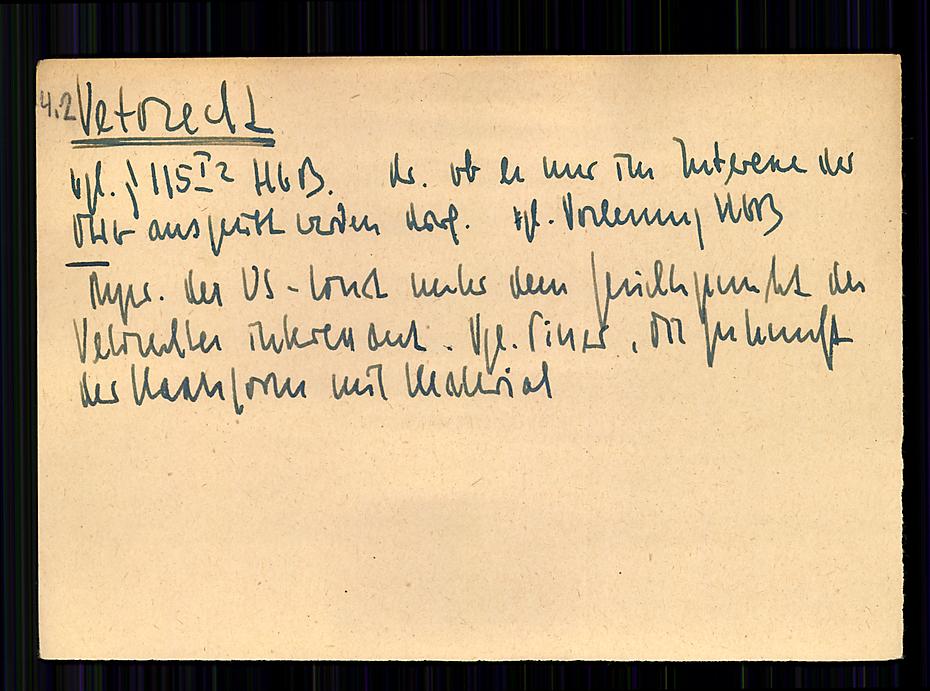 4.2 Vetorecht
vgl. § 115 I 2 HGB. ob er nur im Interesse der
ausgeübt werden darf. vgl. Vorlesung HGB
der US - unter dem Gesichtspunkt des
Vetorechtes interessant. Vgl. Piner, Die Zukunft
der Staatsform mit Material